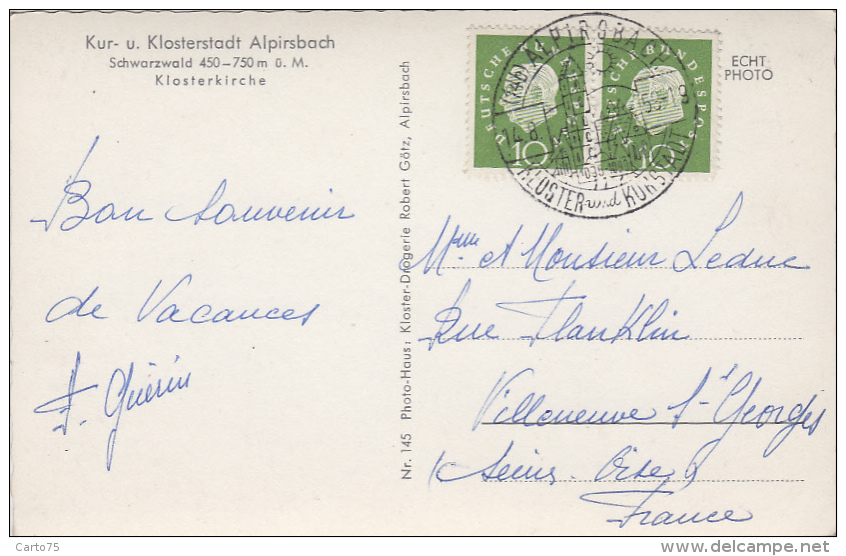 Kur- u. Klosterstadt Alpirsbach
Schwarzwald 450–750 m ü. M.
Klosterkirche
Bon souvenir
de Vacances
F. Guérin
Nr. 145 Photo-Haus: Kloster-Drogerie Robert Götz, Alpirsbach
DEUTSCHE BUNDESPOST
10
DEUTSCHE BUNDESPOST
10
ALPIRSBACH
14.8.59
KLOSTER und KURSTADT
ECHT
PHOTO
Mme et Monsieur Leduc
Rue Flanklin
Villeneuve St Georges
Seine-Oise
France
Carto75
www.delcampe.net